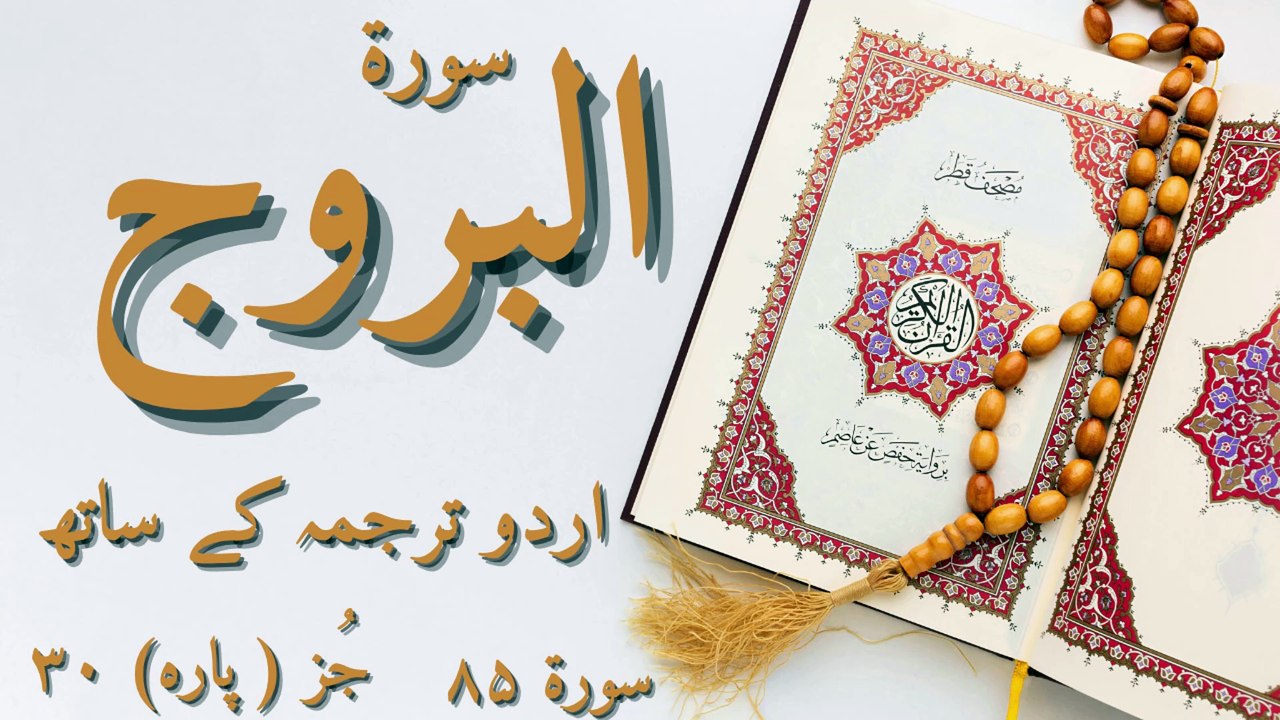 سورۃ
البروج
اردو ترجمہ کے ساتھ
سورۃ ۸۵ جُز (پارہ) ۳۰
مُصْحَفُ قَطَر
القرآن الكريم
بِرِوَايَةِ حَفْصٍ عَنْ عَاصِمٍ